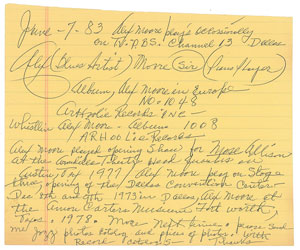 June - 7 - 83 Alex Moore plays occasionally
on TV. PBS. Channel 13 Dallas
Alex (Blues Artist) Moore (Sir) Piano Player
Album, Alex Moore in Europe
NO. 1048
Arhoolie Records INC -
Whistlin Alex Moore - Album 1008
ARHOOLIE Records -
Alex Moore played opening Show for Mose Allison
at the Head Quarters in
Austin, 1977 Alex Moore play on Stage
opening of the Dallas Convention Center -
Dec 8th and 9th 1973 in Dallas, Alex Moore at
the Amon Carter Museum Fort Worth,
Texas 1978. More - please Send
me jozz photos and photos of
Record Thanks